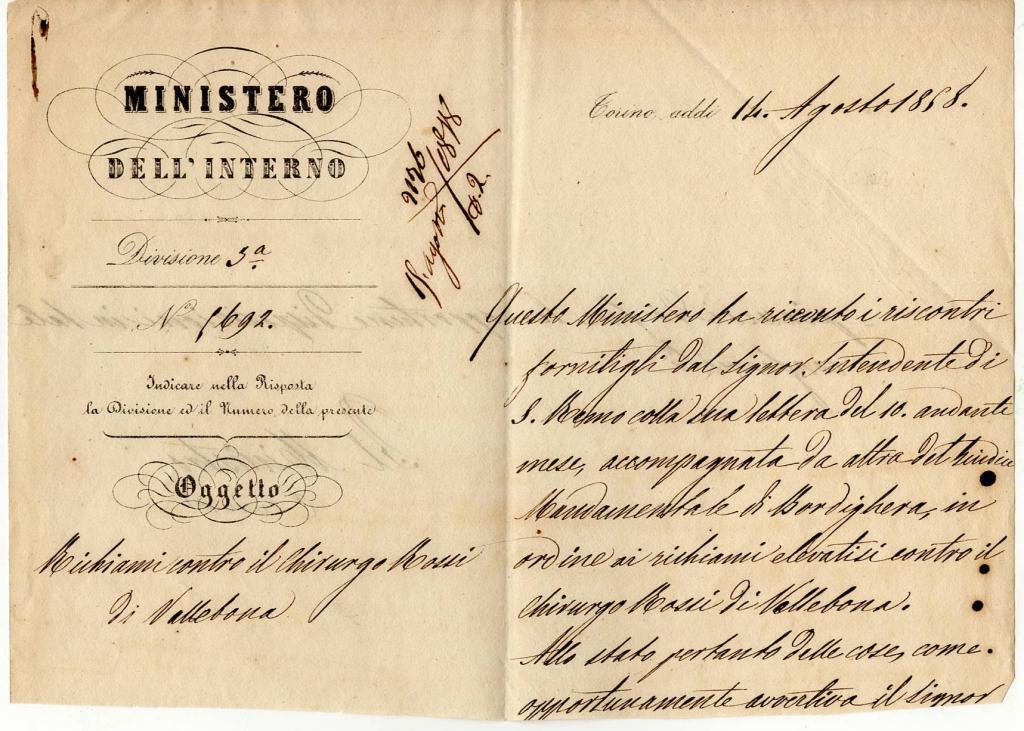 MINISTERO
DELL'INTERNO
Divisione 3ª
Nº 5692.
Indicare nella Risposta
la Divisione ed il Numero della presente
Oggetto
Richiami contro il Chirurgo Rossi
di Vallebona
15. agosto 1858
Torino, addì 14. Agosto 1858.
Questo Ministero ha ricevuto i riscontri
fornitigli dal Signor Intendente di
S. Remo colla sua lettera del 10. andante
mese, accompagnata da altra del Giudice
Mandamentale di Bordighera, in
ordine ai richiami elevatisi contro il
Chirurgo Rossi di Vallebona.
Allo stato pertanto delle cose, come
opportunamente avvertiva il Signor